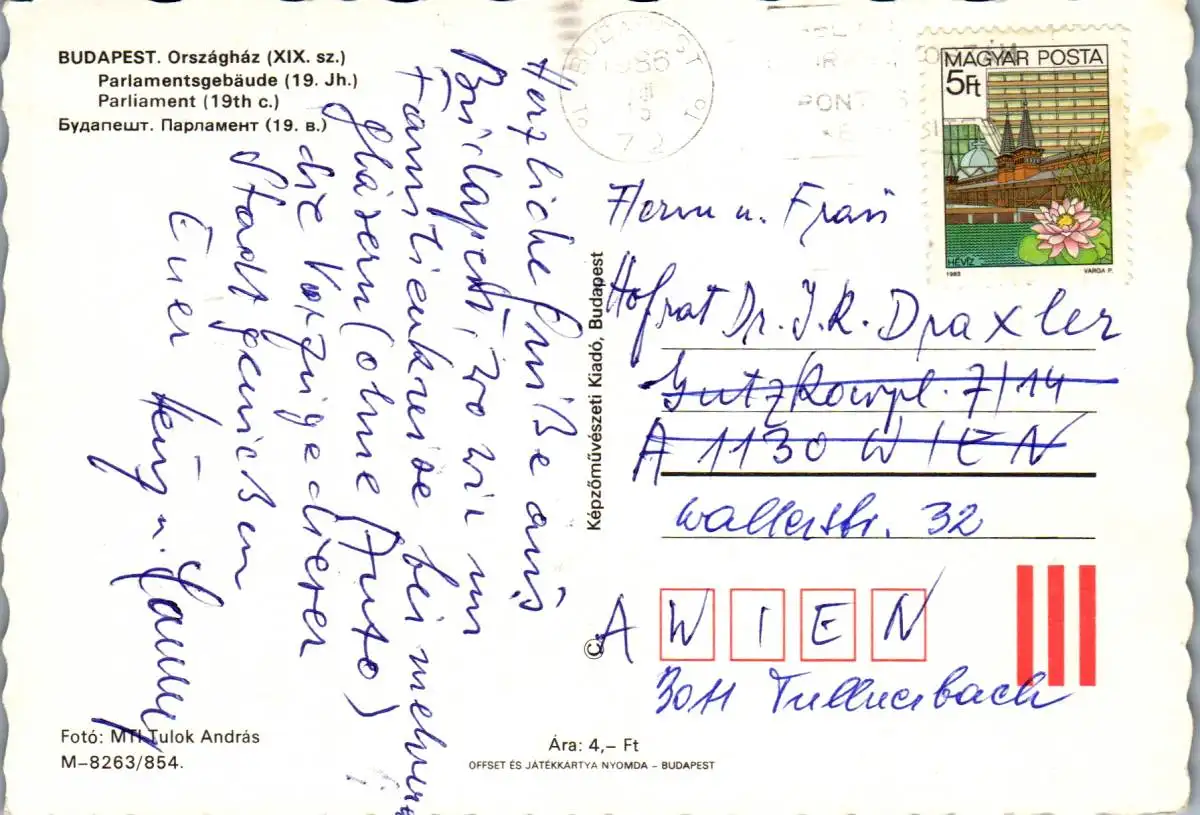 BUDAPEST. Országház (XIX. sz.)
Parlamentsgebäude (19. Jh.)
Parliament (19th c.)
Будапешт. Парламент (19. в.)
Herzliche Grüße aus
Budapest, wo wir im
Familienkreise bei mehreren
Gläsern (ohne Auto)
die Vorzüge dieser
Stadt genießen
Euer
Heinz u.
Foto: MTI Tulok András
M–8263/854.
Képzőművészeti Kiadó, Budapest
©
Ára: 4,– Ft
OFFSET ÉS JÁTÉKKÁRTYA NYOMDA – BUDAPEST
BUDAPEST
1986
72
MAGYAR POSTA
5Ft
HÉVÍZ
1983
VARGA P.
Herrn u. Frau
Hofrat Dr. J. R. Draxler
Gutzkowpl. 7/14
A 1130 WIEN
Wallerstr. 32
A WIEN
3011 Tullnerbach